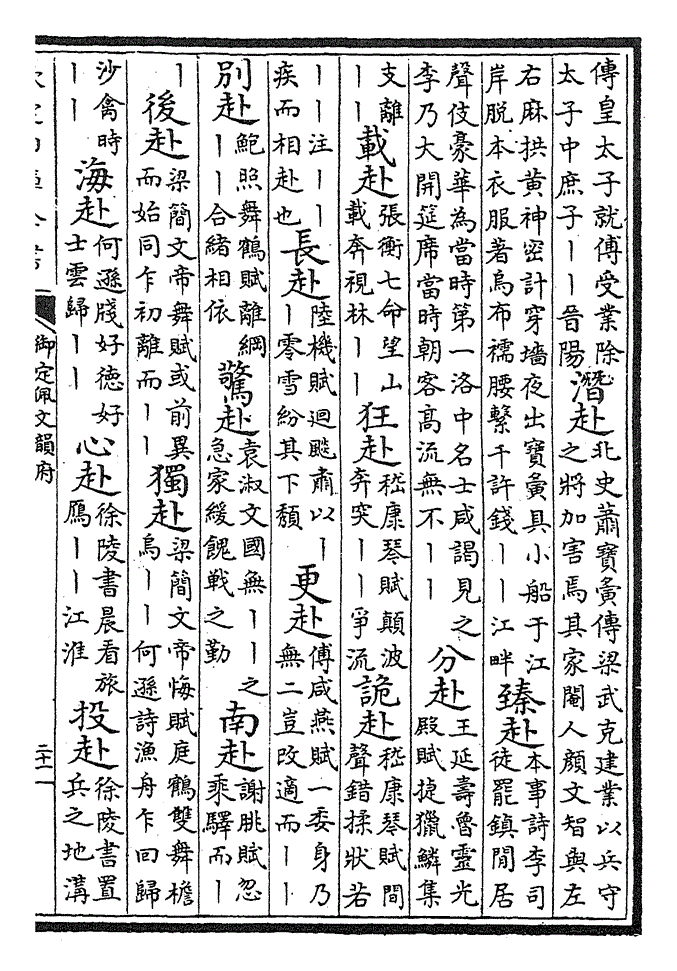 傳皇太子就傅受業除太子中庶子丨丨晉陽潛赴北史蕭寶夤傳梁武克建業以兵守之將加害焉其家閹人顏文智與左
右麻拱黃神密計穿墻夜出寶夤具小船于江岸脱本衣服著烏布襦腰繫千許錢丨丨江畔臻赴本事詩李司徒罷鎮閒居
聲伎豪華為當時第一洛中名士咸謁見之李乃大開筵席當時朝客髙流無不丨丨分赴王延壽魯靈光殿賦捷獵鱗集
支離丨丨載赴張衡七命望山載奔視林丨丨狂赴嵇康琴賦顛波奔突丨丨爭流詭赴嵇康琴賦間聲錯揉狀若
丨丨注丨丨疾而相赴也長赴陸機賦迴飈肅以丨丨零雪紛其下頽更赴傅咸燕賦一委身乃無二豈改適而丨丨
別赴鮑照舞鶴賦離綱丨丨合緒相依驚赴袁淑文國無丨丨之急家緩餽戰之勤南赴謝朓賦忽乘驛而丨
丨後赴梁簡文帝舞賦或前異而始同乍初離而丨丨獨赴梁簡文帝悔賦庭鶴雙舞檐烏丨丨何遜詩漁舟乍回歸
沙禽時丨丨海赴何遜牋好徳好士雲歸丨丨心赴徐陵書晨看旅鴈丨丨江淮投赴徐陵書置兵之地溝
御定佩文韻府